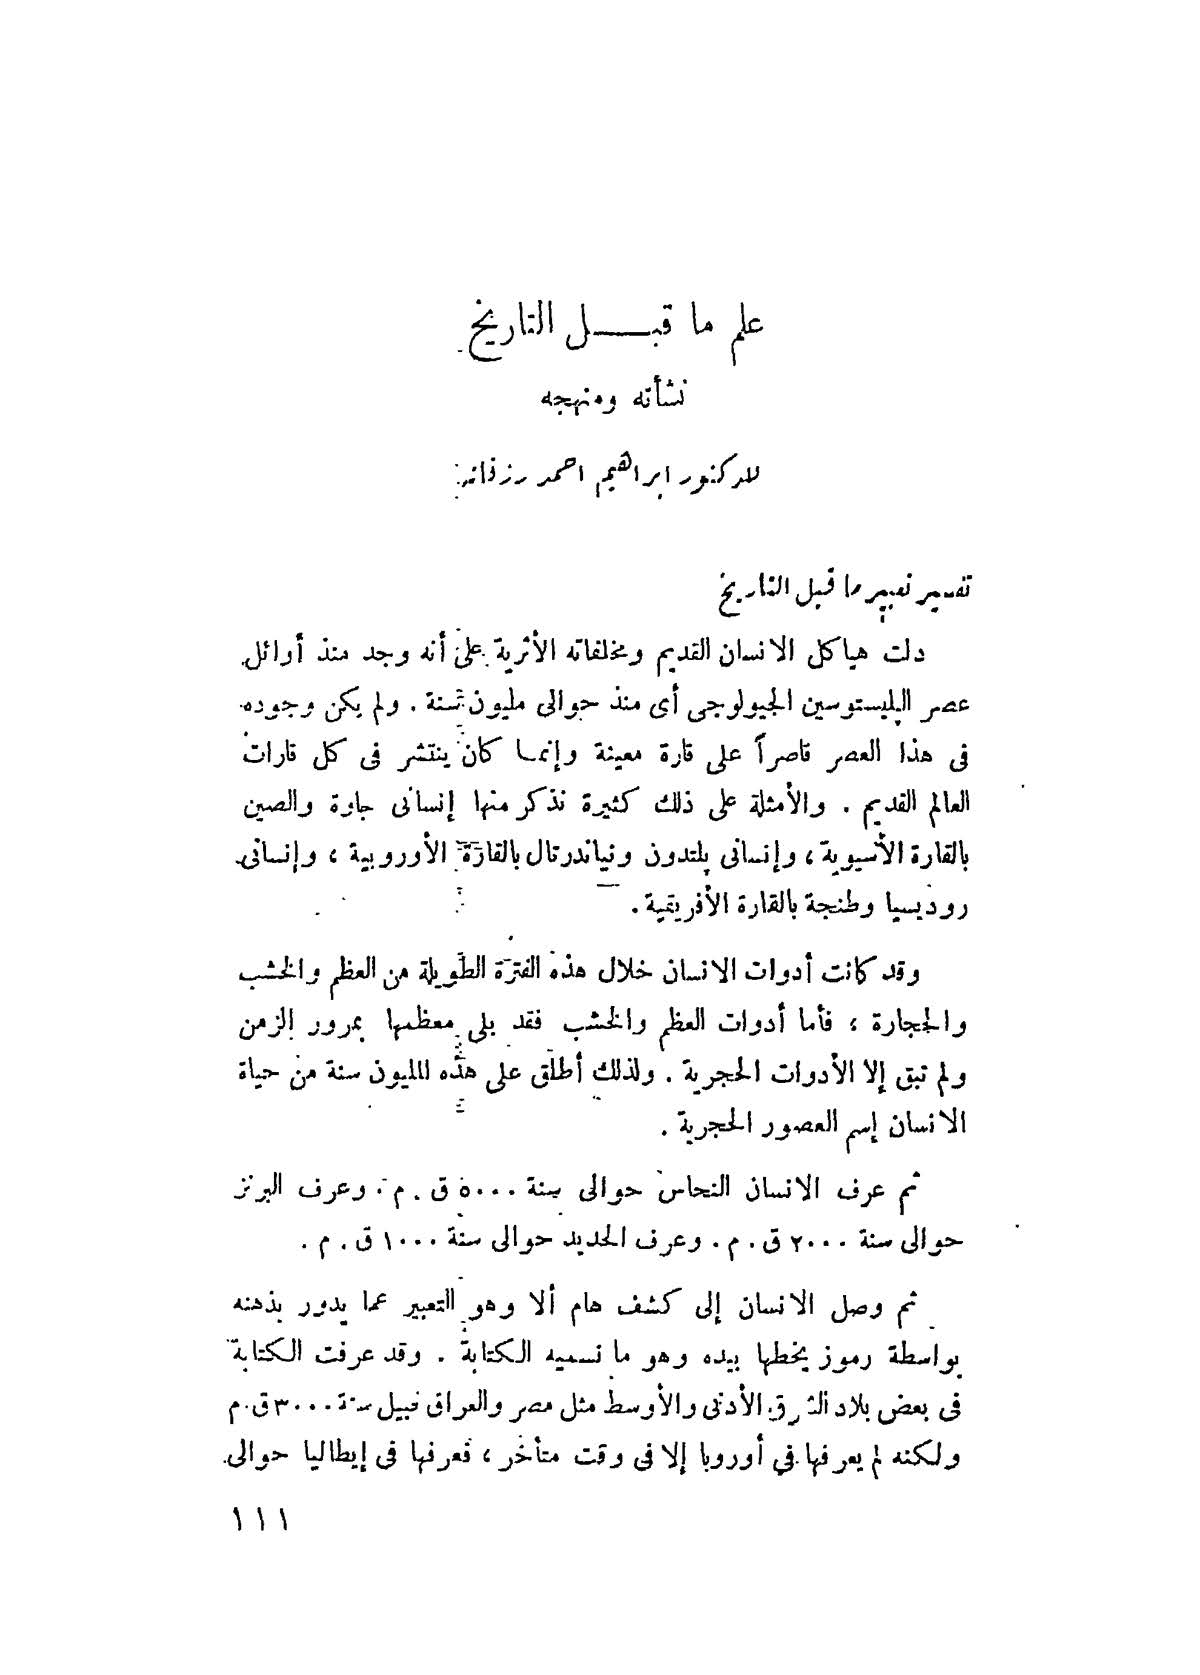 علم ما قبل التاريخ
نشأته ومنهجه
للدكتور ابراهيم احمد رزقانه
تفسير تعبير ما قبل التاريخ
دلت هياكل الانسان القديم ومخلفاته الأثرية على أنه وجد منذ أوائل
عصر البليستوسين الجيولوجى أى منذ حوالى مليون سنة . ولم يكن وجوده
فى هذا العصر قاصراً على قارة معينة وإنما كان ينتشر فى كل قارات
العالم القديم . والأمثلة على ذلك كثيرة نذكر منها إنسانى جاوة والصين
بالقارة الأسيوية ، وإنسانى پلتدون ونياندرتال بالقارة الأوروبية ، وإنسانى
روديسيا وطنجة بالقارة الأفريقية .
وقد كانت أدوات الانسان خلال هذه الفترة الطويلة من العظم والخشب
والحجارة ، فأما أدوات العظم والخشب فقد بلى معظمها بمرور الزمن
ولم تبق إلا الأدوات الحجرية . ولذلك أطلق على هذه المليون سنة من حياة
الانسان إسم العصور الحجرية .
ثم عرف الانسان النحاس حوالى سنة ٥٠٠٠ ق . م . وعرف البرنز
حوالى سنة ٢٠٠٠ ق . م . وعرف الحديد حوالى سنة ١٠٠٠ ق . م .
ثم وصل الانسان إلى كشف هام ألا وهو التعبير عما يدور بذهنه
بواسطة رموز يخطها بيده وهو ما نسميه الكتابة . وقد عرفت الكتابة
فى بعض بلاد الشرق الأدنى والأوسط مثل مصر والعراق قبيل سنة ٣٠٠٠ ق . م
ولكنه لم يعرفها في أوروبا إلا فى وقت متأخر ، فعرفها فى إيطاليا حوالى
١١١